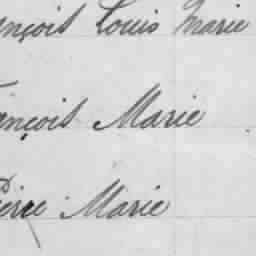 ançois Louis Marie
ançois Marie
Pierre Marie